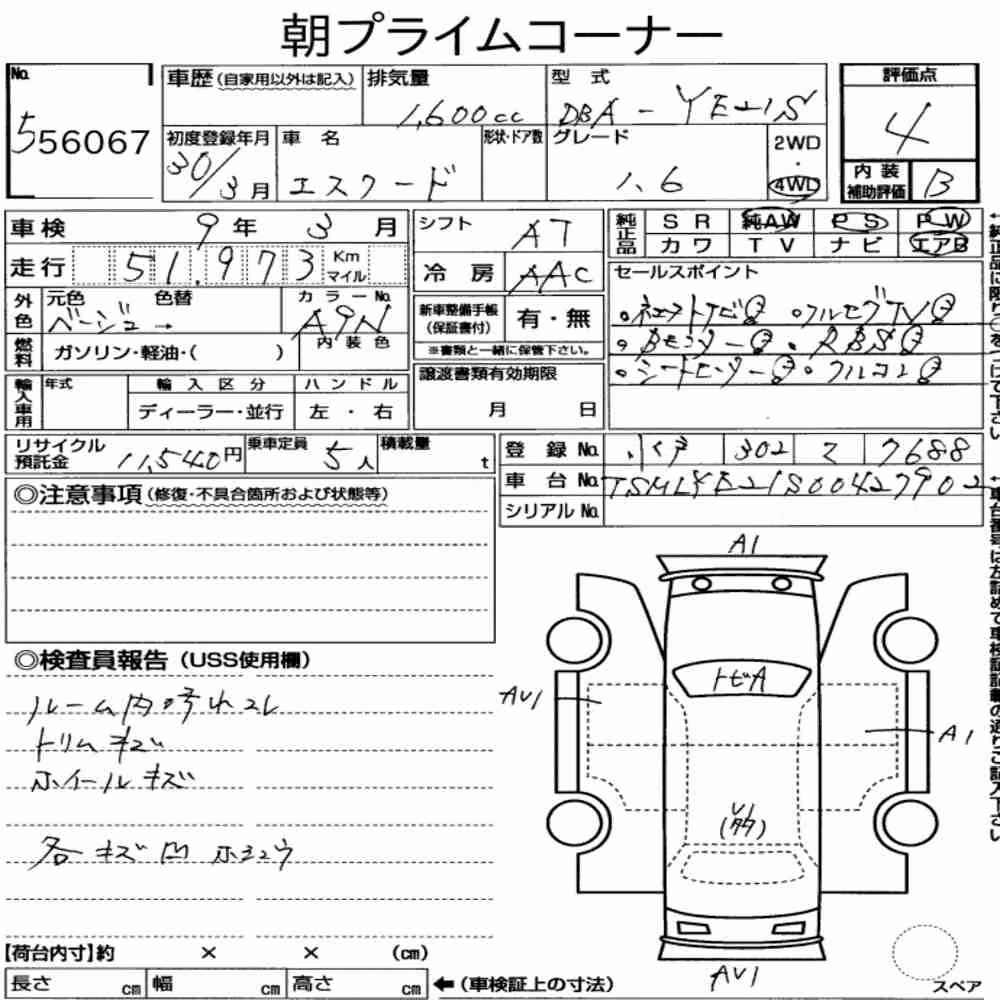 朝プライムコーナー
No. 556067
車歴 (自家用以外は記入)
排気量 1,600cc
型式 DBA - YE21S
評価点 4
初度登録年月 30/3月
車名 エスクード
形状・ドア数
グレード 1.6
2WD・4WD
内装補助評価 B
車検 9年 3月
シフト AT
純正品 SR 純AW PS PW
カワ TV ナビ エアB
走行 51,973 Km マイル
冷房 AAC
セールスポイント
外色 元色 色替 カラーNo.
ベージュ → A9N
内装色
新車整備手帳 (保証書付) 有・無
※書類と一緒に保管下さい。
・フルセグTV
・Bモニター ・RBS
・シートヒーター
燃料 ガソリン・軽油・( )
譲渡書類有効期限
月 日
輸入車用 年式 輸入区分 ハンドル
ディーラー・並行 左・右
リサイクル預託金 11,540円
乗車定員 5人
積載量 t
登録No. 302 7688
車台No. TSMLYE21S00427902
シリアルNo.
◎注意事項 (修復・不具合箇所および状態等)
◎検査員報告 (USS使用欄)
ルーム内汚れコレ
トリムキズ
ホイールキズ
各キズ凹
A1
トビA
AU1
A1
U1
AU1
【荷台内寸】約 × × (cm)
長さ cm 幅 cm 高さ cm ←(車検証上の寸法)
スペア